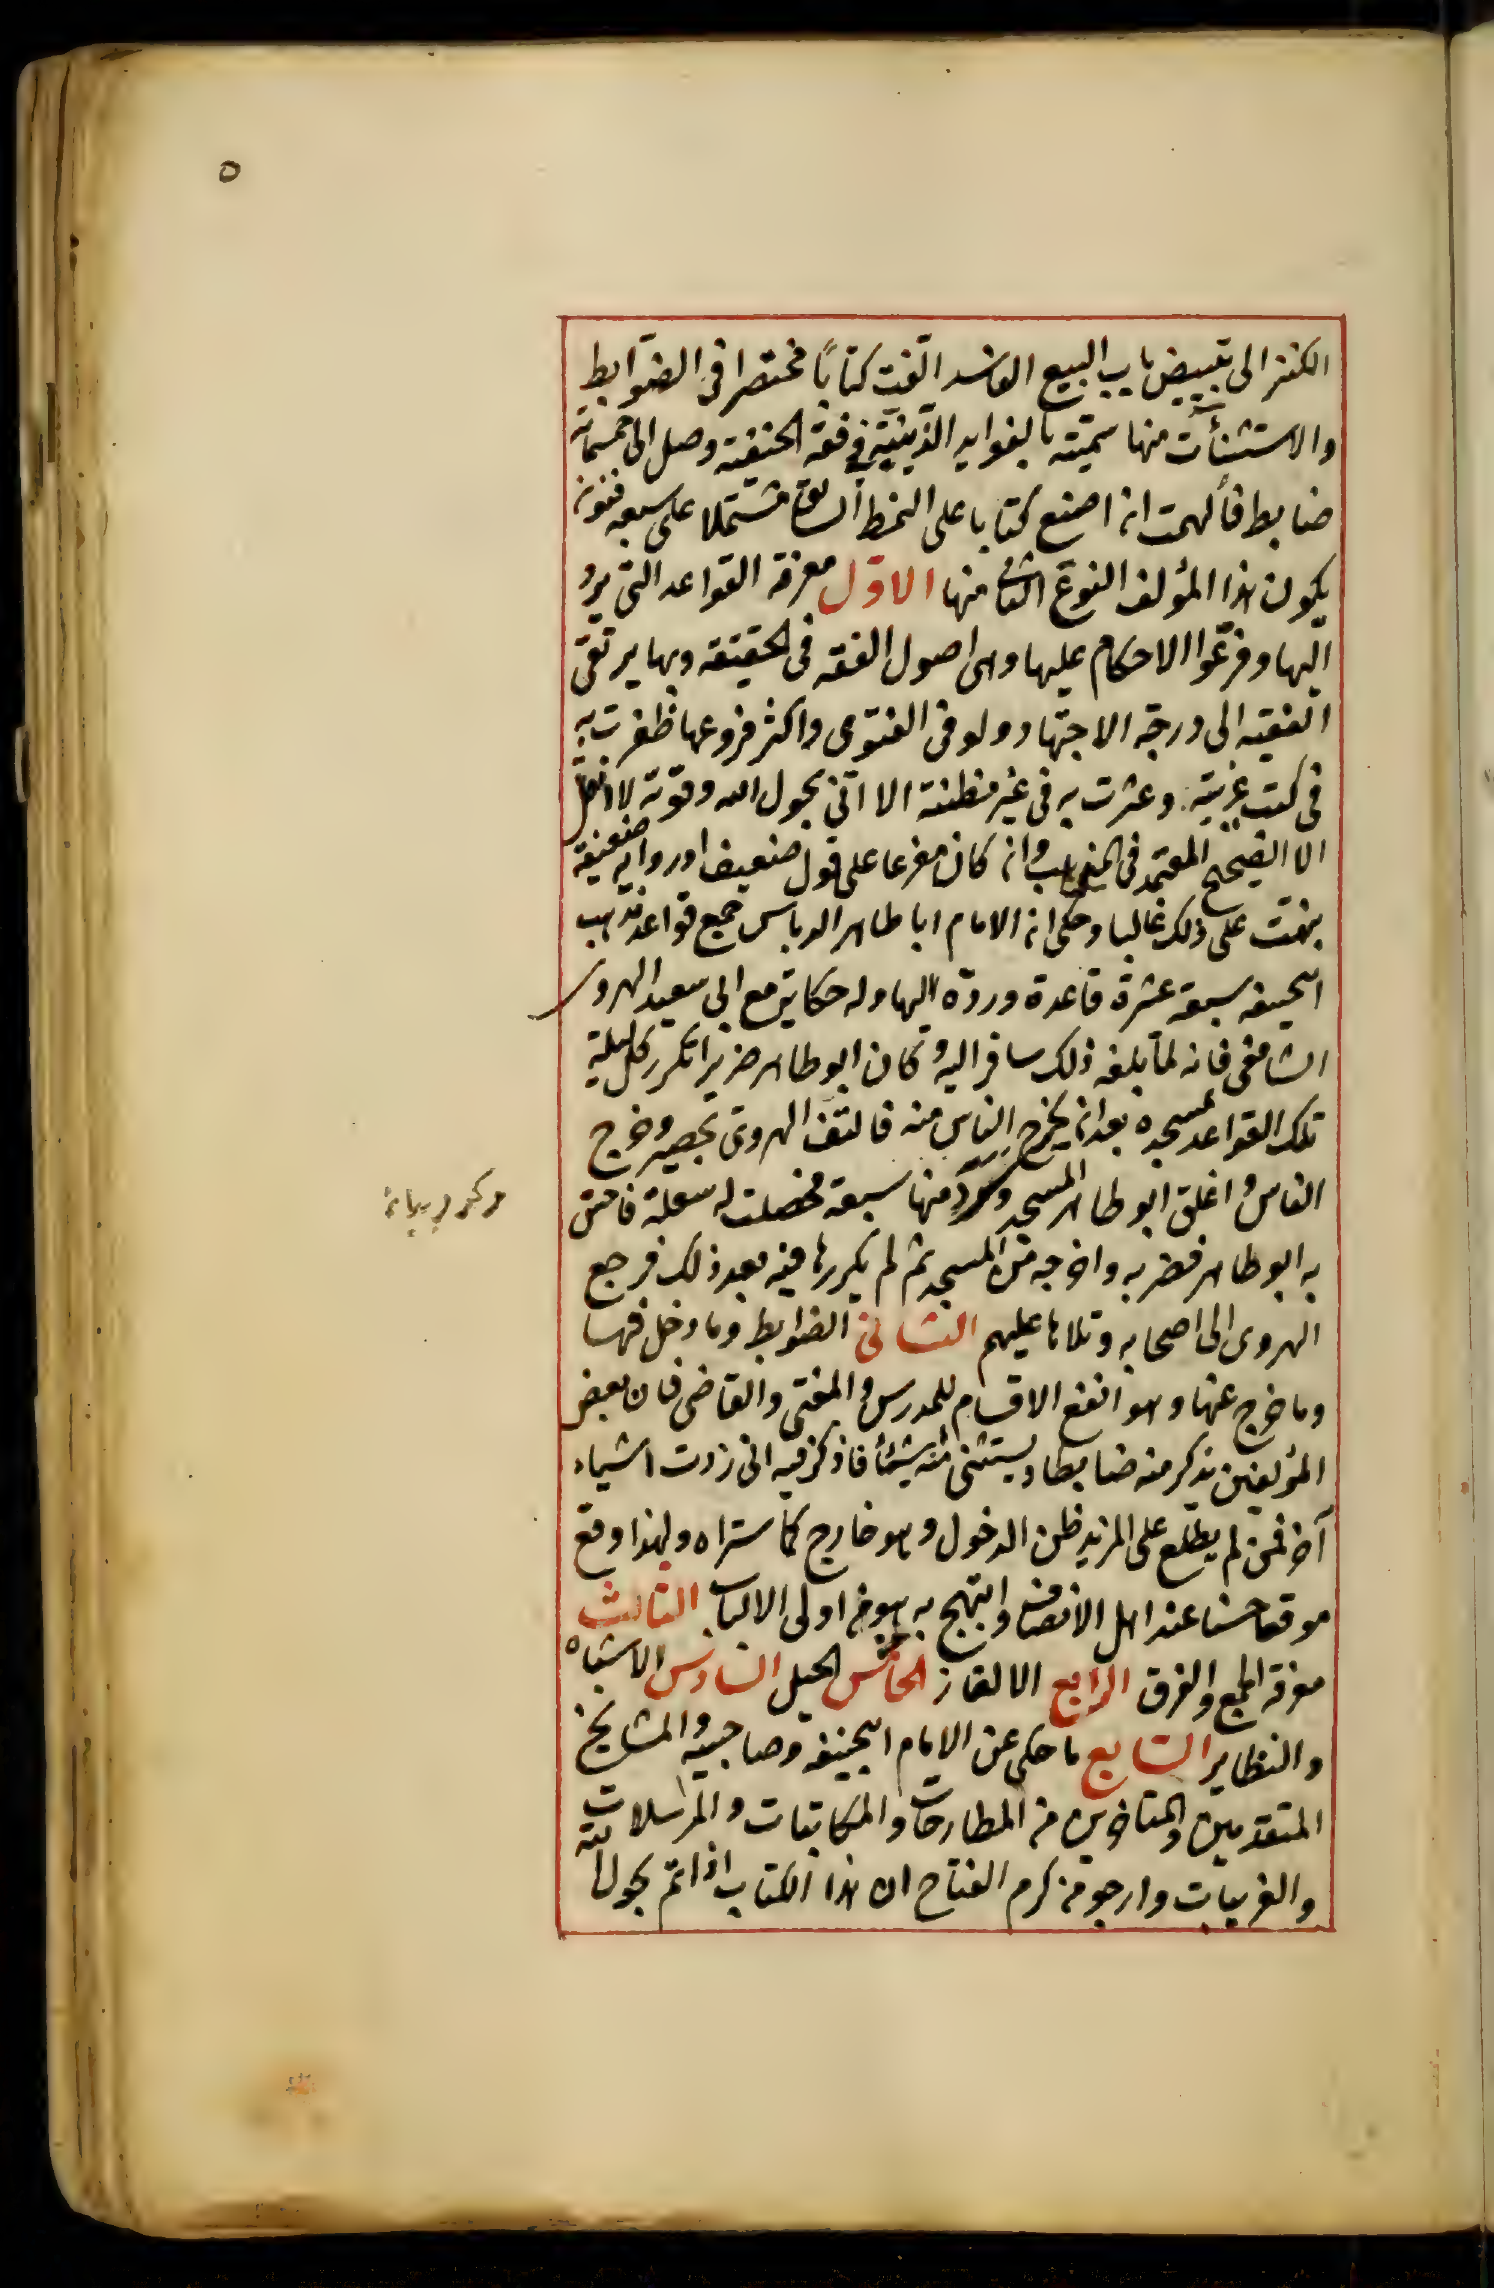 ٥
الكنز الى تبييض باب البيع الفاسد الّفت كتابًا مختصرا فى الضّوابط
والاستثنأت منها سمّيته بالفوايد الزّينيّة فى فقه الحنفية وصل الى خمسمائة
ضابط فألهمت ان اصنع كتابا على النمط السابق مشتملا على سبعه فنون
يكون هذا المؤلف النوع الثانى منها الاوّل معرفة القواعد التى يردّ
اليها وفرّعوا الاحكام عليها وهى اصول الفقه فى الحقيقه وبها يرتقى
الفقيه الى درجة الاجتهاد ولو فى الفتوى واكثر فروعها ظفرت به
فى كتب غريبة وعثرت به فى غير مظنته الا انّى بحول الله وقوّته لا انقل
الا الصّحيح المعتمد فى المذهب وان كان مفرعا على قول ضعيف او رواية ضعيفة
نبهت على ذلك غالبا وحكى ان الامام ابا طاهر الدباس جمع قواعد مذهب
ابيحنيفه سبعة عشرة قاعدة وردّه اليها وله حكاية مع ابى سعيد الهروى
الشافعى فانه لما بلغه ذلك سافر اليه وكان ابو طاهر ضريرا تكرر كل ليلة
تلك القواعد بمسجده بعد ان يخرج الناس منه فالتفّ الهروى بحصير وخرج
الناس واغلق ابو طاهر المسجد وسرد منها سبعة فحصلت له سعلة فاحس
به ابو طاهر فضربه واخرجه من المسجد ثم لم يكررها فيه بعد ذلك فرجع
الهروى الى اصحابه وتلاها عليهم الثانى الضوابط وما دخل فيها
وما خرج عنها وهو انفع الاقسام للمدرس والمفتى والقاضى فان بعض
المؤلفين يذكر منه ضابطا ويستثنى منه شيئأ فاذكر فيه انى زدت اشياء
آخر فمن لم يطّلع على المزيد ظن الدخول وهو خارج كما ستراه ولهذا وقع
موقعا حسنا عند اهل الانصاف وابتهج به من هو من اولى الالباب الثالث
معرفة الجمع والفرق الرابع الالغاز الخامس الحيل السادس الاشباه
والنظاير السابع ما حكى عن الامام ابيحنيفه وصاحبيه والمشايخ
المتقدمين والمتاخرين من المطارحات والمكاتبات والمراسلات
والغريبات وارجو من كرم الفتاح ان هذا الكتاب اذا تمّ بحول الله